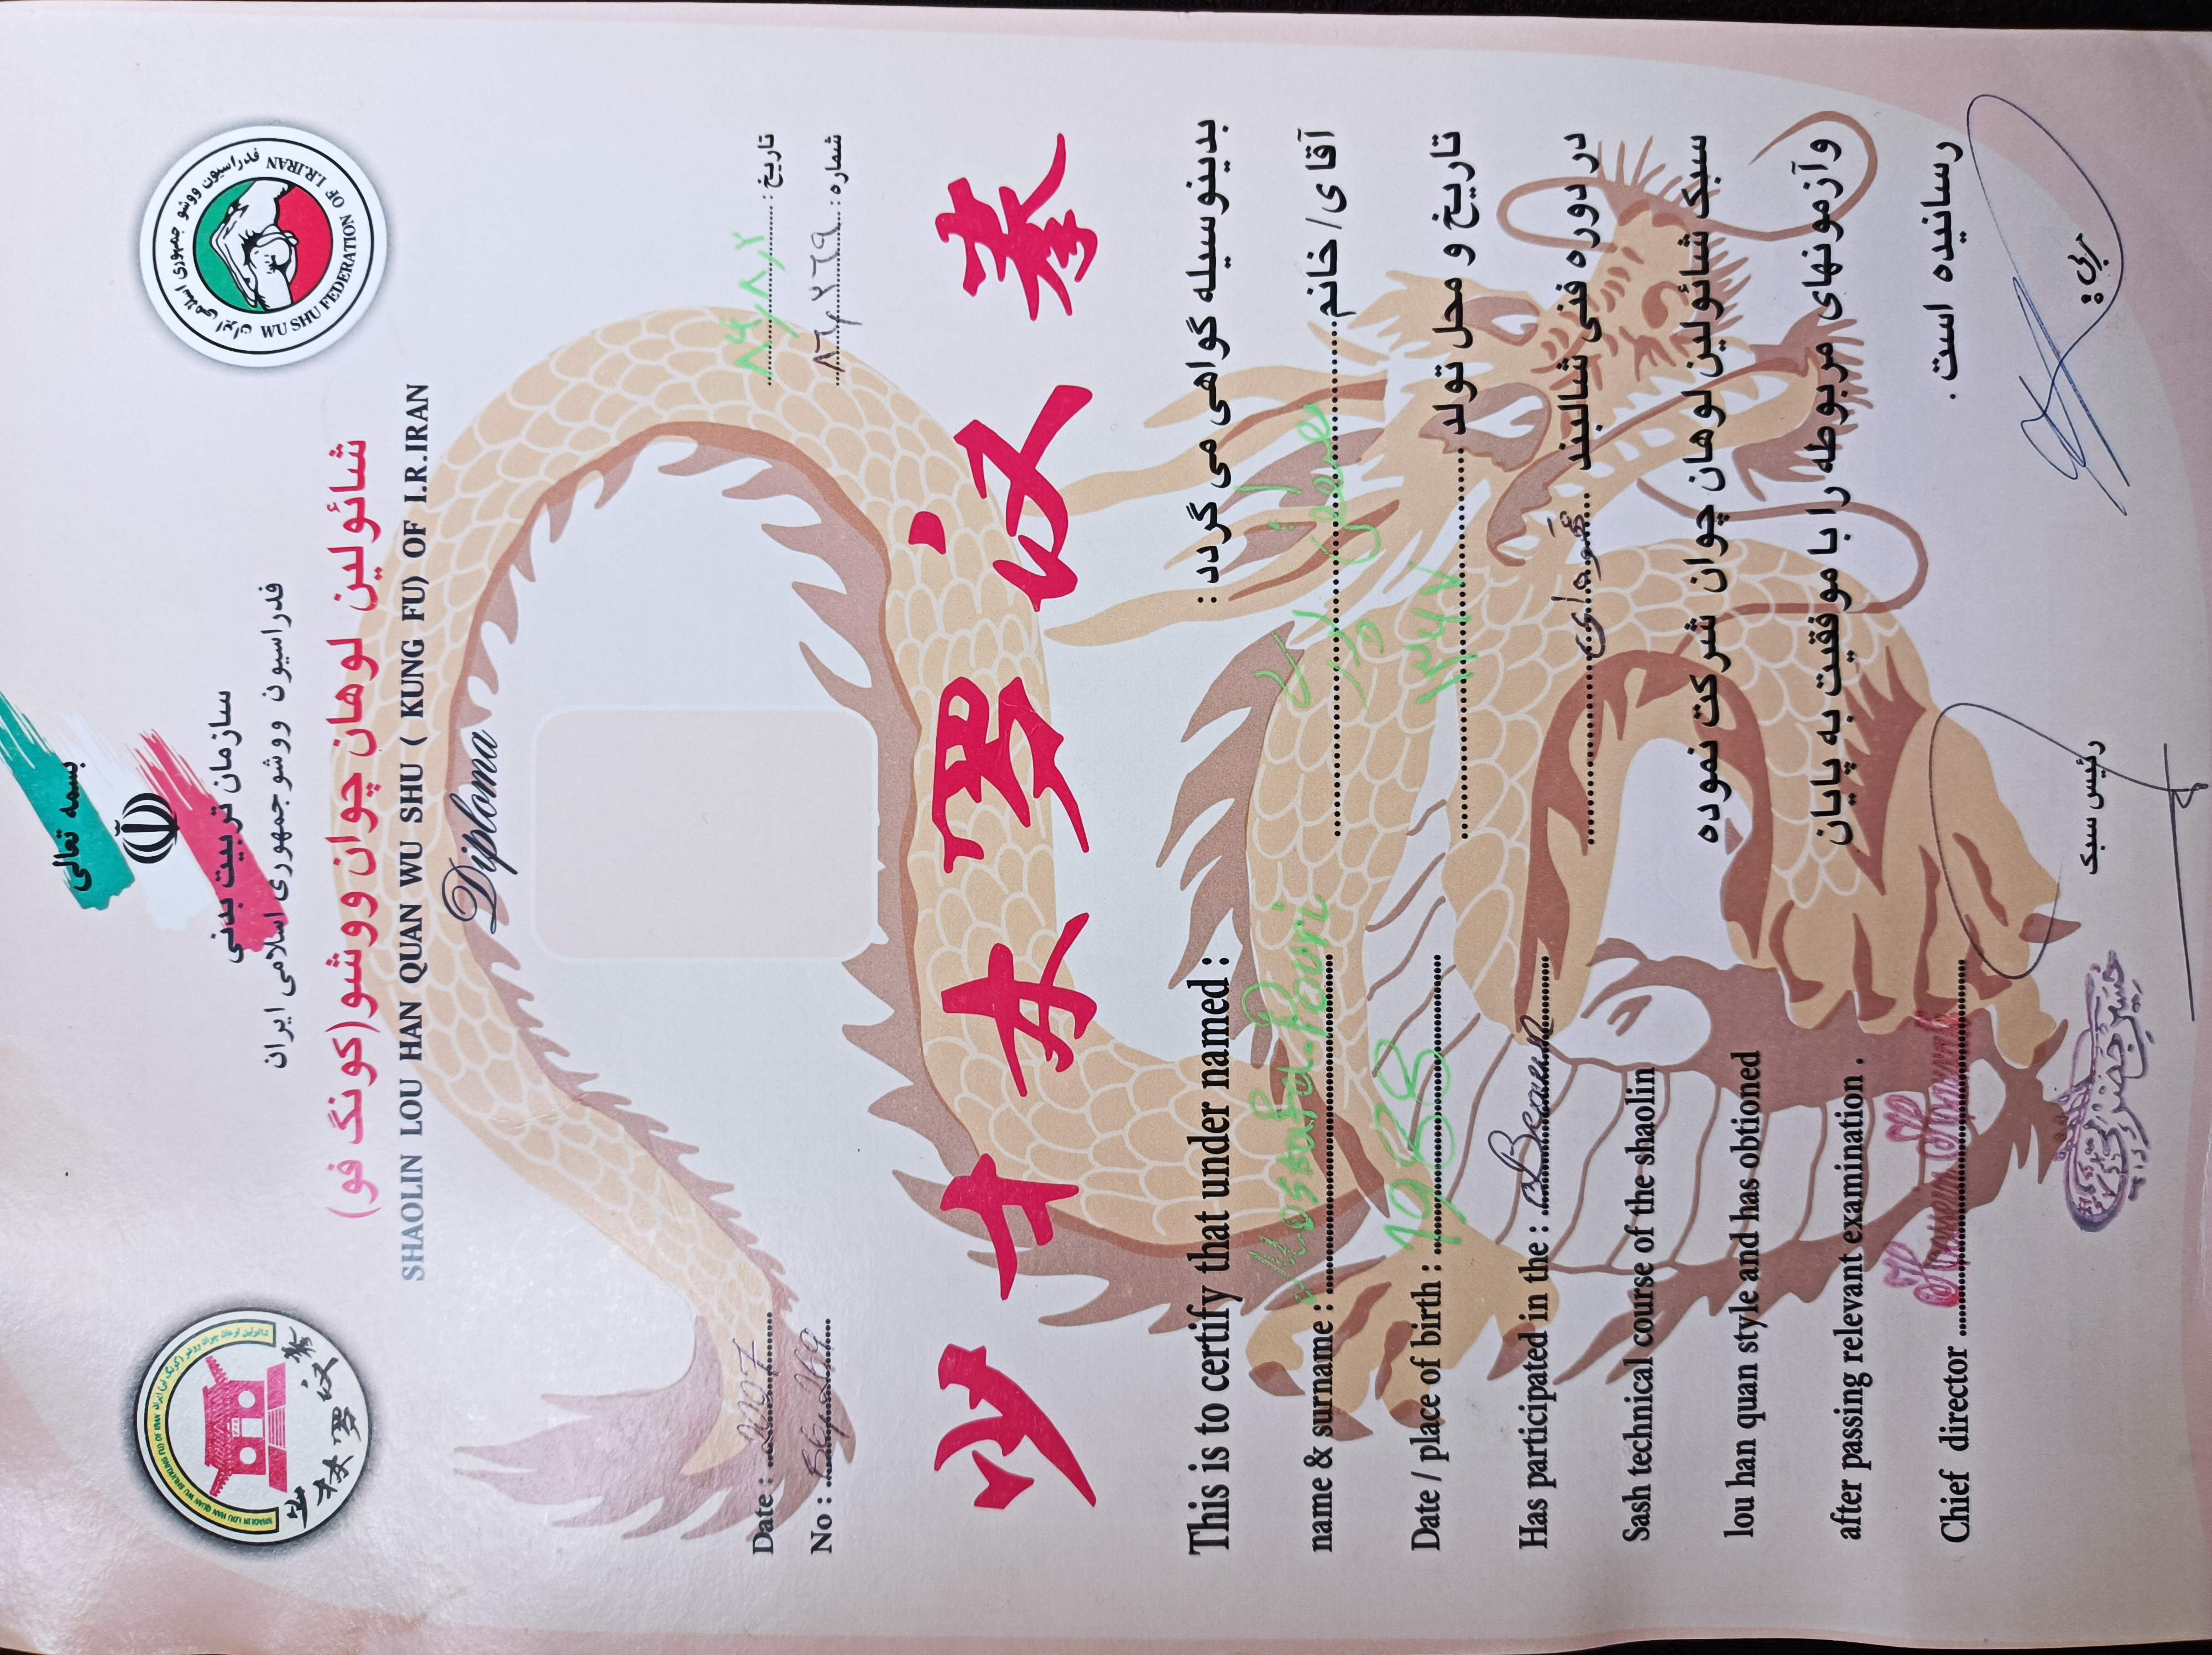 بسمه تعالی
سازمان تربیت بدنی
فدراسیون ووشو جمهوری اسلامی ایران
شائولین لوهان چوان ووشو(کونگ فو)
SHAOLIN LOU HAN QUAN WU SHU ( KUNG FU) OF I.R.IRAN
فدراسیون ووشو جمهوری اسلامی ایران
WU SHU FEDERATION OF I.R.IRAN
少林罗汉拳
Diploma
Date : 2007
No :
تاریخ :
شماره : ۸۶/۲۶۹
少林罗汉拳
This is to certify that under named :
name & surname : Mostafa.Pouri
Date / place of birth : 1988
Has participated in the : Brown
Sash technical course of the shaolin
lou han quan style and has obtioned
after passing relevant examination .
Chief director
بدینوسیله گواهی می گردد :
آقای/ خانم
تاریخ و محل تولد
در دوره فنی شالبند قهوه ای
سبک شائولین لوهان چوان شرکت نموده
وآزمونهای مربوطه را با موفقیت به پایان
رسانیده است .
رئیس سبک
مربی: